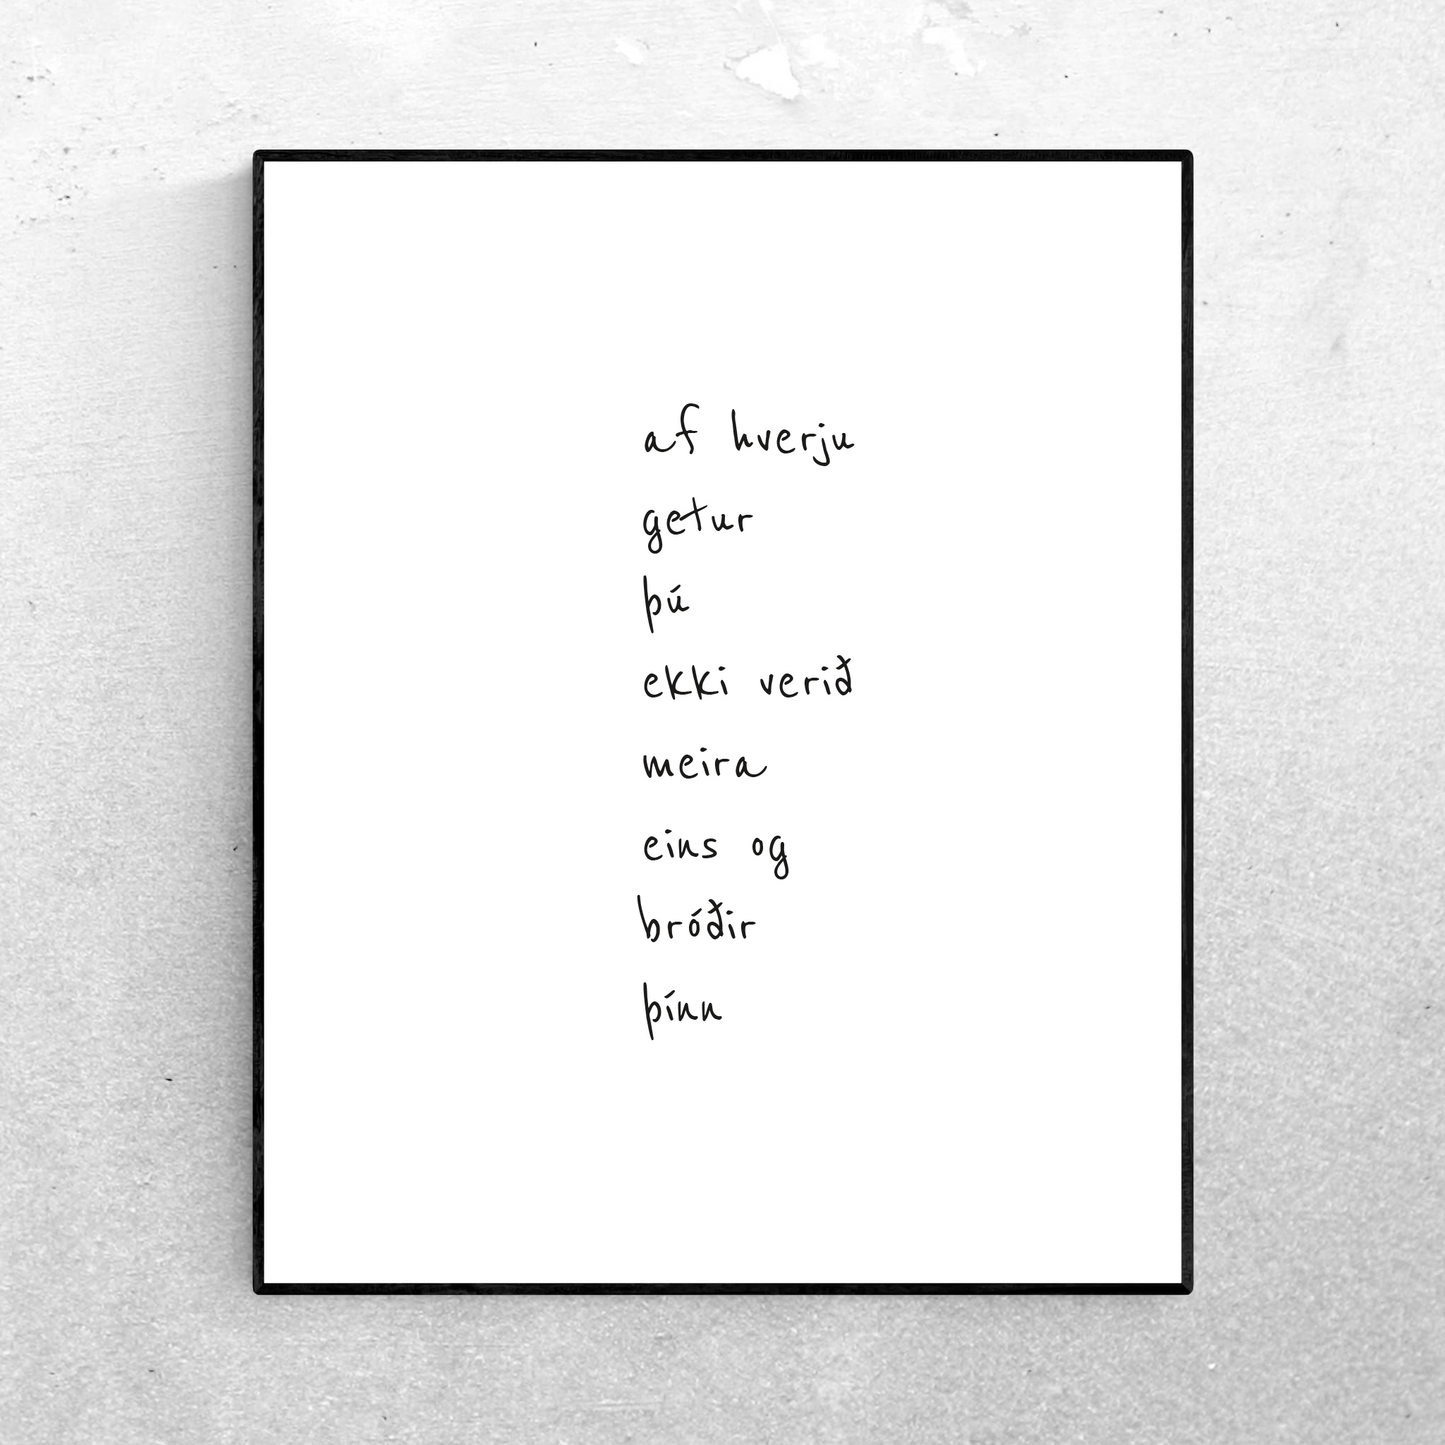 af hverju
getur
þú
ekki verið
meira
eins og
bróðir
þínn